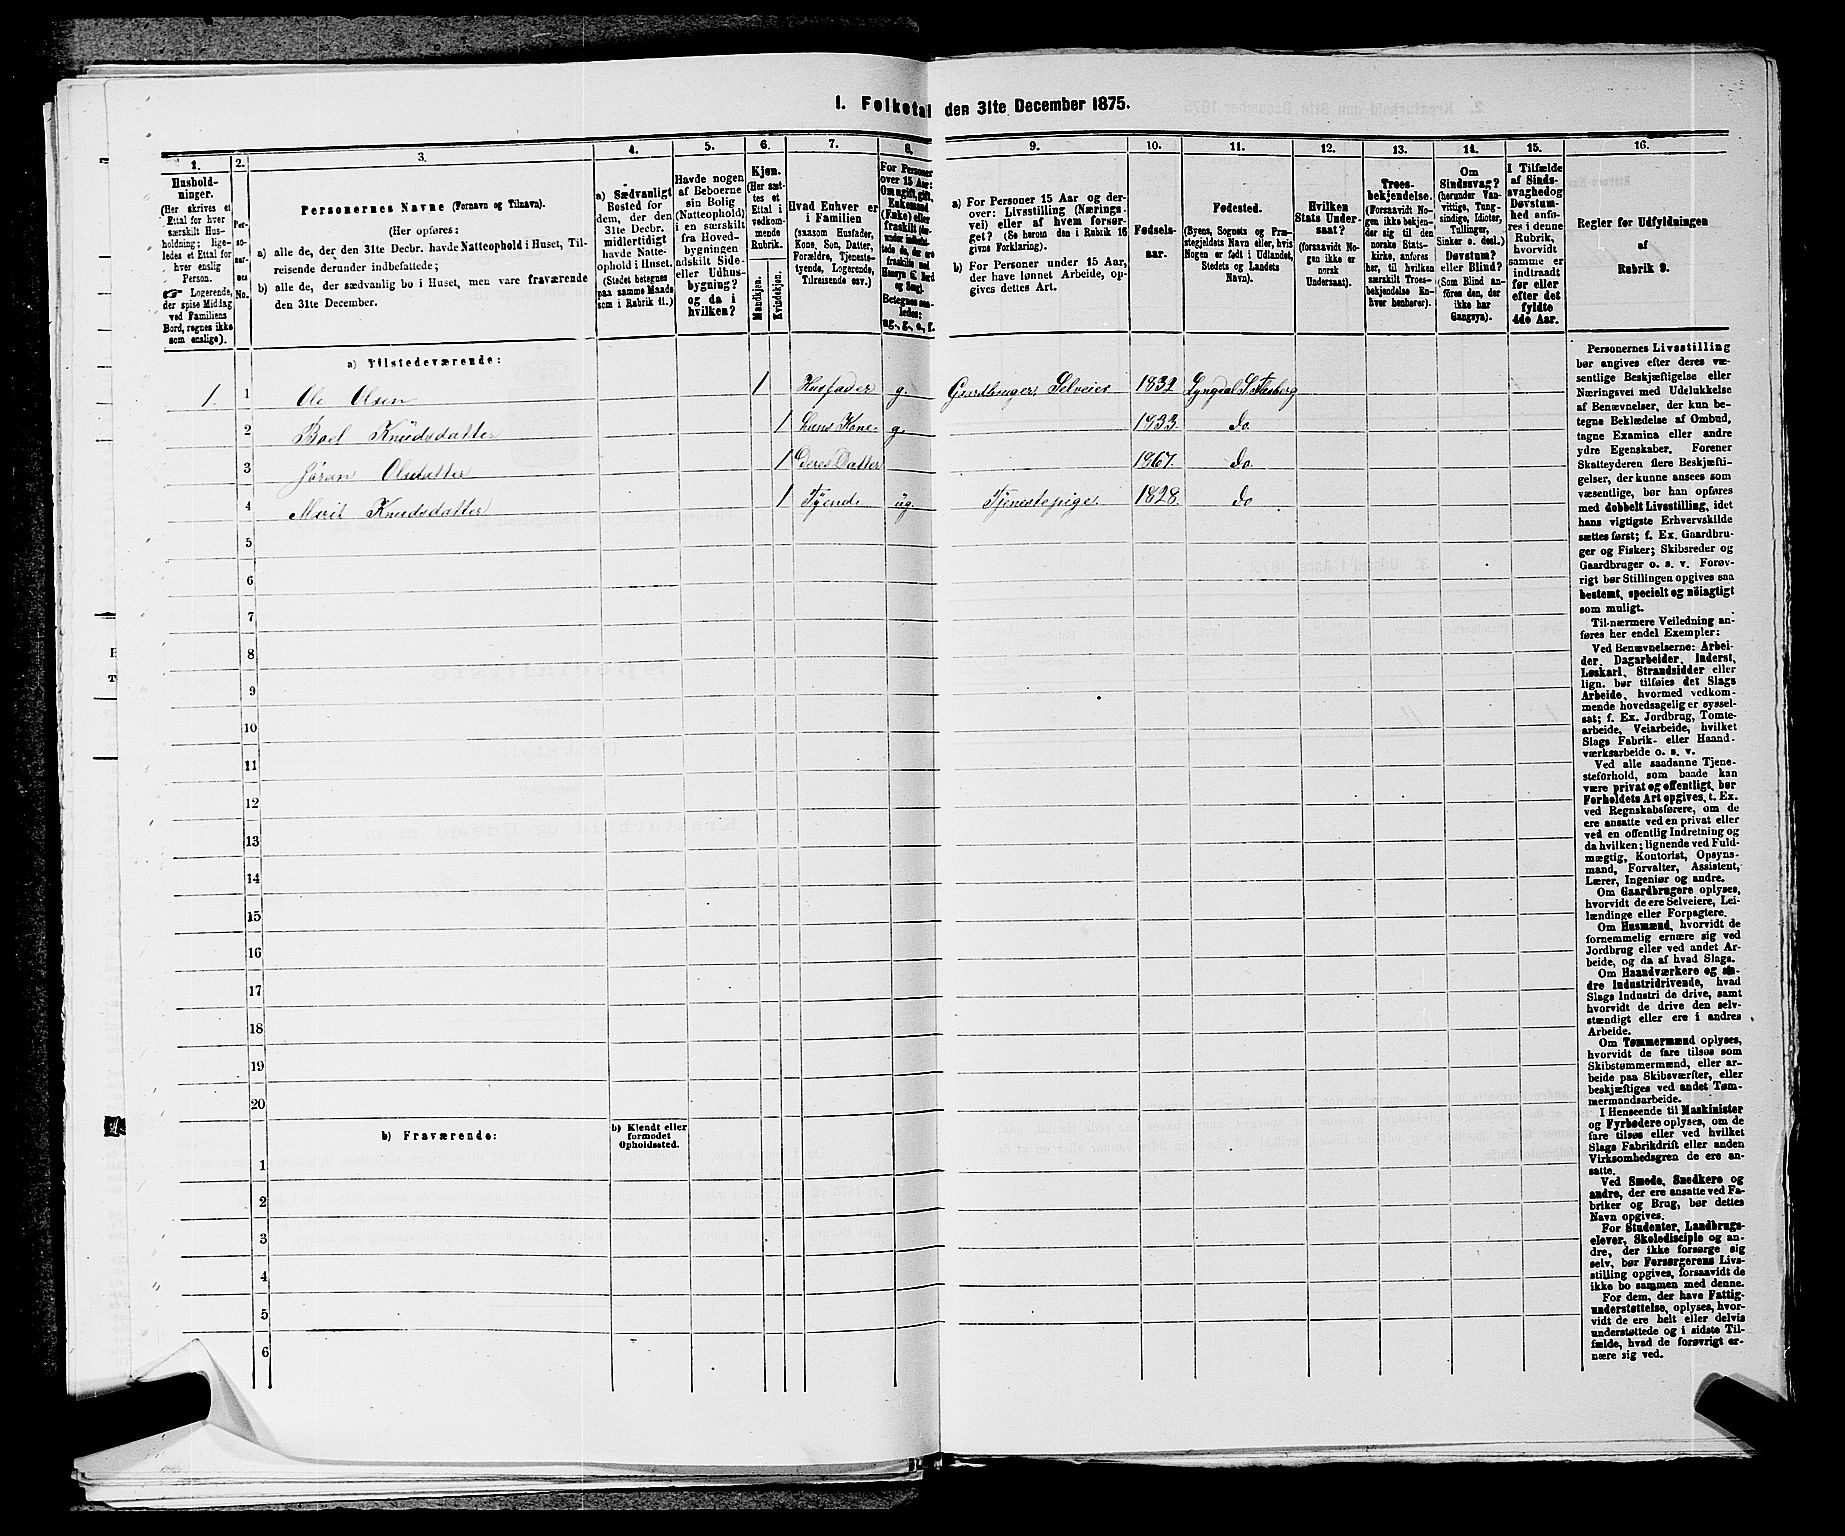 1. Folketal den 31te December 1875.
1. 2. 3. 4. 5. 6. 7. 8. 9. 10. 11. 12. 13. 14. 15. 16.
Hushold-
ninger.
(Her skrives et
Ettal for hver
særskilt Hus-
holdning; lige-
ledes et Ettal for
hver enslig
Person.
☞ Logerende,
der spise Middag
ved Familiens
Bord, regnes ikke
som enslige).
Per-
so-
ner-
nes
No.
Personernes Navne (Fornavn og Tilnavn).
(Her opføres:
a) alle de, der den 31te Decbr. havde Natteophold i Huset, Til-
reisende derunder indbefattede;
b) alle de, der sædvanlig bo i Huset, men vare fraværende
den 31te December.
a) Sædvanligt
Bosted for
dem, der den
31te Decbr.
midlertidigt
havde Natte-
ophold i Huset.
(Stedet betegnes
paa samme Maade
som i Rubrik 11.)
Havde nogen
af Beboerne
sin Bolig
(Natteophold)
i en særskilt
fra Hoved-
bygningen
adskilt Side-
eller Udhus-
bygning?
og da i
hvilken?
Kjøn.
(Her sæt-
tes et
Ettal i
vedkom-
mende
Rubrik.
Mandkjøn.
Kvindekjøn.
Hvad Enhver er
i Familien
(saasom Husfader,
Kone, Søn, Datter,
Forældre, Tjeneste-
tyende, Logerende,
Tilreisende osv.)
For Personer
over 15 Aar:
Om ugift, gift,
Enkemand
(Enke) eller
fraskilt
Betegnes saa-
ledes:
ug., g., e., f.
a) For Personer 15 Aar og der-
over: Livsstilling (Nærings-
vei) eller af hvem forsør-
get? (Se herom den i Rubrik 16
givne Forklaring).
b) For Personer under 15 Aar,
der have lønnet Arbeide, op-
gives dettes Art.
Fødsels-
aar.
Fødested.
(Byens, Sognets og Præ-
stegjeldets Navn eller, hvis
Nogen er født i Udlandet,
Stedets og Landets
Navn).
Hvilken
Stats Under-
saat?
(forsaavidt No-
gen ikke er
norsk
Undersaat).
Troes-
bekjendelse.
(Forsaavidt No-
gen ikke bekjen-
der sig til den
norske Stats-
kirke, anføres
her, til hvilken
særskilt Troes-
bekjendelse En-
hver henhører).
Om
Sindssvag?
(herunder Van-
vittige, Tung-
sindige, Idioter,
Tullinger,
Sinker o. desl.)
Døvstum?
eller Blind?
(Som Blind an-
føres den, der
ikke har
Gangsyn).
I Tilfælde
af Sinds-
svaghed og
Døvstum-
hed anfø-
res i denne
Rubrik,
hvorvidt
samme er
indtraadt
før eller
efter det
fyldte
4de Aar.
Regler for Udfyldningen
af
Rubrik 9.
a) Tilstedeværende:
1. 1 Ole Olsen 1 Husfader g. Gaardbruger, Selveier 1832 Lyngdal S. Flesberg
2 Boel Knudsdatter 1 hans Kone g. 1833. do.
3 Jøran Olsdatter 1 deres Datter 1867. do.
4 Marit Knudsdatter 1 Tyende ug. Tjenestepige. 1828. do
5
6
7
8
9
10
11
12
13
14
15
16
17
18
19
20
b) Fraværende:
b) Kjendt eller
formodet
Opholdssted.
1
2
3
4
5
6
Personernes Livsstilling
bør angives efter deres væ-
sentlige Beskjæftigelse eller
Næringsvei med Udelukkelse
af Benævnelser, der kun be-
tegne Beklædelse af Ombud,
tagne Examina eller andre
ydre Egenskaber. Forener
Skatteyderen flere Beskjæfti-
gelser, der kunne ansees som
væsentlige, bør han opføres
med dobbelt Livsstilling, idet
hans vigtigste Erhvervskilde
sættes først; f. Ex. Gaardbru-
ger og Fisker; Skibsreder og
Gaardbruger o. s. v. Forøv-
rigt bør Stillingen opgives saa
bestemt, specielt og nöiagtigt
som muligt.
Til nærmere Veiledning an-
føres her endel Exempler:
Ved Benævnelserne: Arbei-
der, Dagarbeider, Inderst,
Løskarl, Strandsidder eller
lign. bør tilføies det Slags
Arbeide, hvormed vedkom-
mende hovedsagelig er syssel-
sat; f. Ex. Jordbrug, Tomte-
arbeide, Veiarbeide, hvilket
Slags Fabrik- eller Haand-
værksarbeide o. s. v.
Ved alle saadanne Tjene-
steforhold, som baade kan
være privat og offentligt, bør
Forholdets Art opgives, t. Ex.
ved Regnskabsførere, om de
ere ansatte ved en privat eller
ved en offentlig Indretning og
da hvilken; lignende ved Fuld-
mægtig, Kontorist, Opsyns-
mand, Forvalter, Assistent,
Lærer, Ingeniør og andre.
Om Gaardbrugere oplyses,
hvorvidt de ere Selveiere, Lei-
lændinge eller Forpagtere.
Om Husmænd, hvorvidt de
fornemmelig ernære sig ved
Jordbrug eller ved andet Ar-
beide, og da af hvad Slags.
Om Haandværkere og an-
dre Industridrivende, hvad
Slags Industri de drive, samt
hvorvidt de drive den selv-
stændigt eller ere i andres
Arbeide.
Om Tømmermænd oplyses,
hvorvidt de fare tilsøs som
Skibstømmermænd, eller ar-
beide paa Skibsværfter, eller
beskjæftiges ved andet Tøm-
mermandsarbeide.
I Henseende til Maskinister
og Fyrbødere oplyses, om de
fare tilsøs eller ved hvilket
Slags Fabrikdrift eller anden
Virksomhedsgren de ere an-
satte.
Ved Smede, Snedkere og
andre, der ere ansatte ved Fa-
briker og Brug, bør dettes
Navn opgives.
For Studenter, Landbrugs-
elever, Skoledisciple og an-
dre, der ikke forsørge sig
selv, bør Forsørgerens Livs-
stilling opgives, forsaavidt de
ikke bo sammen med denne.
For dem, der have Fattig-
understøttelse, oplyses, hvor-
vidt de ere helt eller delvis
understøttede og i sidste Til-
fælde, hvad de forøvrigt er-
nære sig ved.